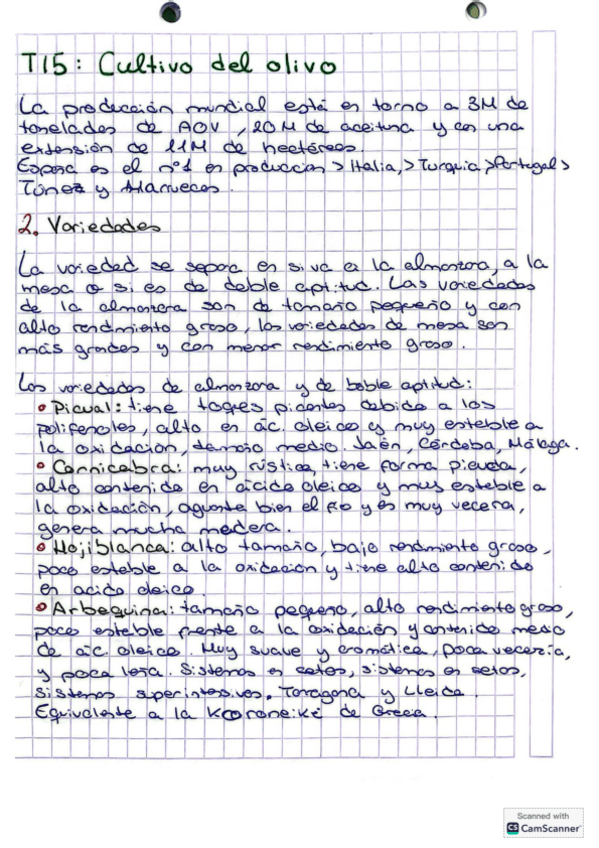 T15: Cultivo del olivo
La producción mundial está en torno a 3M de
toneladas de AOV, 20M de aceituna y con una
extensión de 11M de hectáreas.
España es el nº1 en producción > Italia, > Turquía > Portugal >
Túnez y Marruecos.
2. Variedades
La variedad se separa en si va a la almazara, a la
mesa o si es de doble aptitud. Las variedades
de la almazara son de tamaño pequeño y con
alto rendimiento graso, las variedades de mesa son
más grandes y con menor rendimiento graso.
Las variedades de almazara y de boble aptitud:
• Picual: tiene toques picantes debido a los
polifenoles, alto en ác. oleico y muy estable a
la oxidación, tamaño medio. Jaén, Córdoba, Málaga.
• Cornicabra: muy rústica, tiene forma picuda,
alto contenido en ácido oleico y muy estable a
la oxidación, aguanta bien el frío y es muy vecera,
genera mucha madera.
• Hojiblanca: alto tamaño, bajo rendimiento graso,
poco estable a la oxidación y tiene alto contenido
en acido oleico.
• Arbequina: tamaño pequeño, alto rendimiento graso,
poco estable frente a la oxidación y contenido medio
de ác. oleico. Muy suave y aromática, poca vecería,
y poca leña. Sistemas en setos, sistemas en setos,
sistemas superintesivos. Taragona y Lleida.
Equivalente a la Koroneiki de Grecia.
Scanned with
CS CamScanner